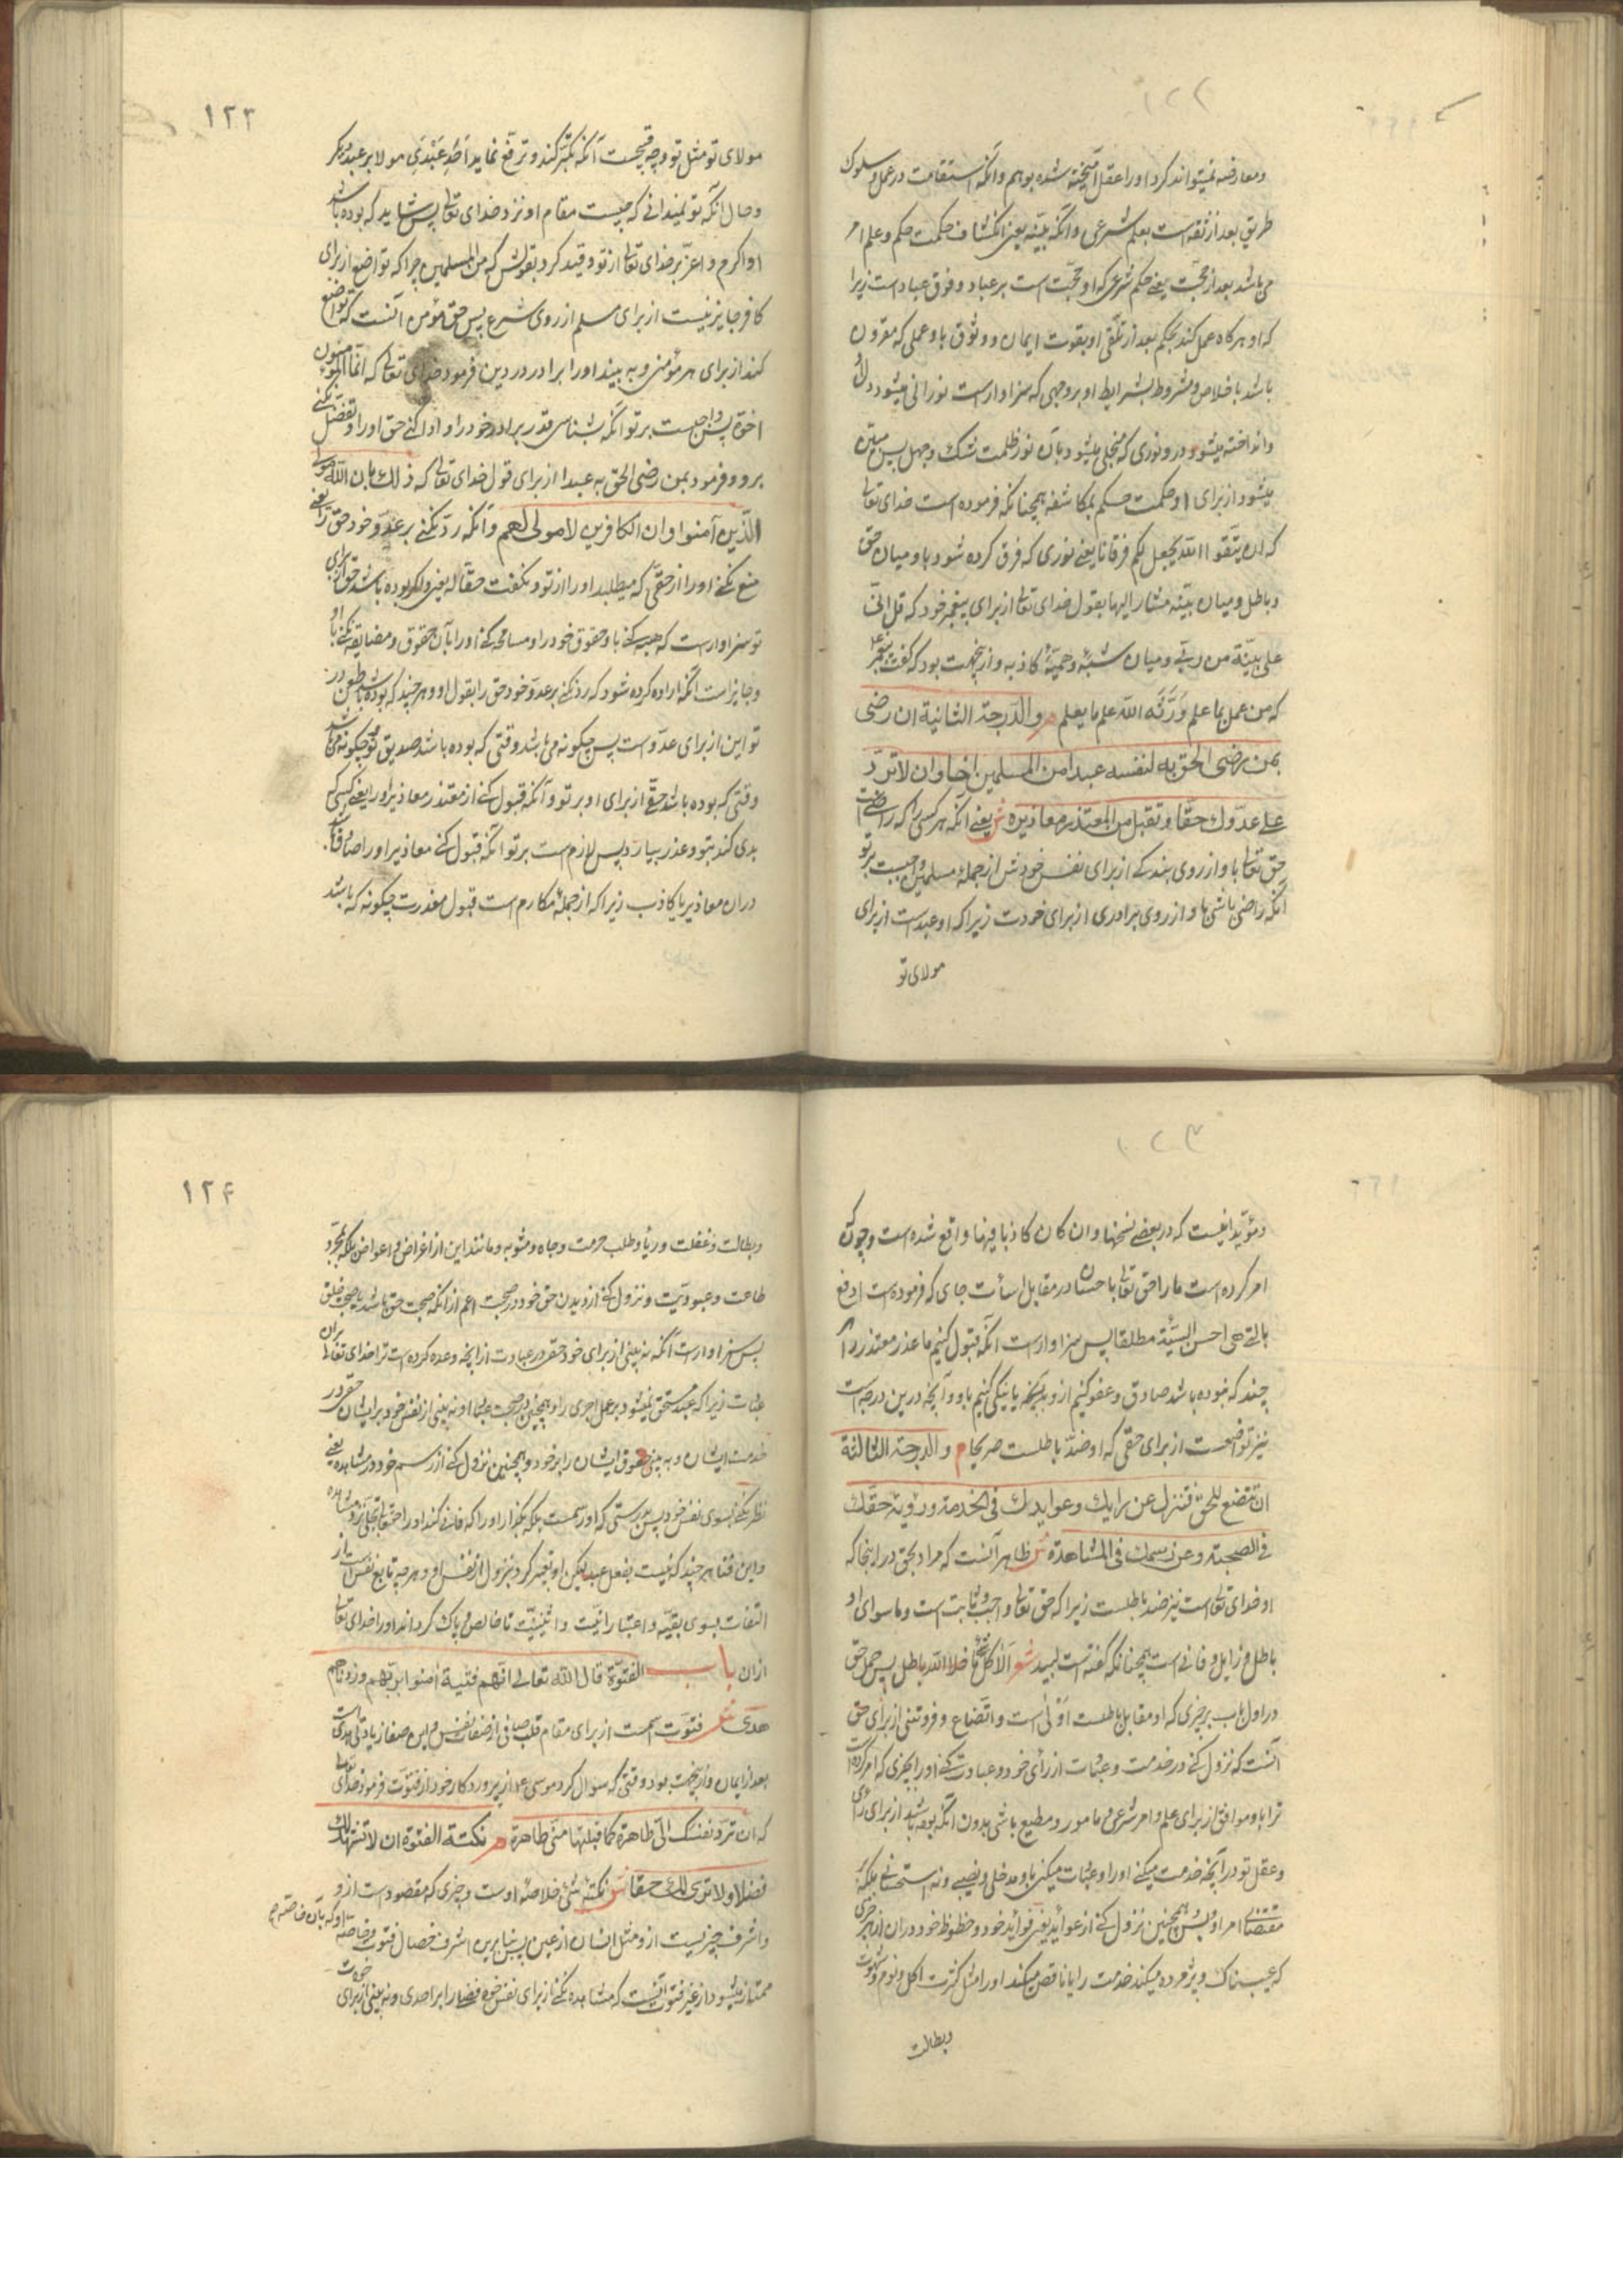 ومعارضه نمیتواند کرد اورا عقل آمیخته شده بوهم وآنکه استقامت در عمل وسلوک
طریق بعد از ثقه است بعلم شرعی وآنکه بیّنه یعنی انکشاف حکمت حکم وعلم امر
می باشد بعد از حجّت یعنی حکم شرعی که او حجّت است بر عباد وفوق عباد است زیرا
که او هرکاه عمل کند بحکم بعد از تلقّی او بقوت ایمان ووثوق باو عملی که مقرون
باشد باخلاص ومشروط بشرایط او بر وجهی که سزاوارست نورانی میشود دل او
وانداخته میشود درو نوری که منجلی میشود بآن نور ظلمت شک وجهل پس مبیّن
میشود از برای او حکمت حکم بمکاشفه همچنانکه فرموده است خدای تعالی
که ان تتّقوا الله یجعل لکم فرقانا یعنی نوری که فرق کرده شود باو میان حق
وباطل ومیان بیّنه مشار الیها بقول خدای تعالی از برای پیغمبر خود که قل انّی
علی بیّنة من ربّی ومیان شبهٔ وحمیّهٔ کاذبه واز ینجهت بود که گفت پیغمبر ع
که من عمل بما علم ورّثه الله علم ما یعلم م والدّرجة الثانیة ان رضی
بمن یرضی الحق به لنفسه عبدا من المسلمین اخا وان لا تردّ
علی عدوّک حقّا وتقبل من المعتذر معاذیره ش یعنی آنکه هر کسی را که راضی است
حق تعالی باو از روی بندکی از برای نفس خودش از جملهٔ مسلمین واجبست بر تو
آنکه راضی باشی باو از روی برادری از برای خودت زیرا که او عبدست از برای
مولای تو
۱۲۳
مولای تو مثل تو وچه قبیحست آنکه تکبّر کند وترفّع نماید احد عبدی مولا بر عبد دیگر
وحال آنکه تو نمیدانی که چیست مقام او نزد خدای تعالی پس شاید که بوده باشد
او اکرم واعزّ بر خدای تعالی از تو وقید کرد بقولش که من المسلمین چرا که تواضع از برای
کافر جایز نیست از برای مسلم از روی شرع پس حق مؤمن آنست که تواضع
کند از برای هر مؤمنی وبه بیند اورا برادر در دین فرمود خدای تعالی که انّما المؤمنون
اخوة پس واجبست بر تو آنکه بشناسی قدر برادر خود را وادا کنی حق اورا وتفضّل نکنی
برو وفرمود بمن رضی الحق به عبدا از برای قول خدای تعالی که ذلک بان الله مولی
الّذین آمنوا وان الکافرین لا مولی لهم وآنکه ردّ نکنی بر عدوّ خود حق را یعنی
منع نکنی اورا از حقّی که میطلبد اورا از تو ونکفت حقّا له یعنی ولکر بوده باشد حق از برای
تو سزاوارست که هبه کنی باو حقوق خود را ومسامحه کنی اورا بآن حقوق ومضایقه نکنی باو
وجایزاست آنکه اراده کرده شود که ردّ نکنی بر عدوّ خود حق را بقول او وهر چند که بوده باشد طعن در
تو این از برای عدوّ است پس چکونه می باشد وقتی که بوده باشد صدیق تو وچکونه می باشد
وقتی که بوده باشد حق از برای او بر تو وآنکه قبول کنی از معتذر معاذیر اورا یعنی کسی که
بدی کند بتو وعذر بیارد پس لازم است بر تو آنکه قبول کنی معاذیر اورا صادق باشد
در آن معاذیر یا کاذب زیرا که از جملهٔ مکارم است قبول معذرت چکونه که باشد
ومؤیّد اینست که در بعضی نسخها وان کان کاذبا فیها واقع شده است وچون که
امر کرده است ما را حق تعالی باحسان در مقابل اسأت جای که فرموده است ادفع
بالتی هی احسن السیّئة مطلقا پس سزاوارست آنکه قبول کنیم ما عذر معتذر را هر
چند که نبوده باشد صادق وعفو کنیم ازو بلکه یا نیکی کنیم باو وآنچه درین درجه است
نیز تواضعست از برای حقی که او ضدّ باطلست صریحا م والدرجة الثالثة
ان تتّضع للحقّ فتنزل عن رایک وعوایدک فی الخدمة ورؤیة حقّک
فی الصحبة وعن رسمک فی المشاهدة ش ظاهر آنست که مراد بحق در اینجا که
او خدای تعالی است نیز ضد باطلست زیرا که حق تعالی واجب وثابت است وما سوای او
باطل وزایل وفانی است همچنانکه گفته است لبید شعر الا کلّ شیء ما خلا الله باطل پس حمل حق
در اول باب بر چیزی که او مقابل باطلست اوّلی است واتّضاع وفروتنی از برای حق
آنست که نزول کنی در خدمت وعبادت از رای خود وعبادت کنی اورا بچیزی که امر کرده است
ترا باو وموافق از برای علم وامر شرعی ومامور ومطیع باشی بدون آنکه بوده باشد از برای رای
وعقل تو در آنچه خدمت میکنی اورا وعبادت میکنی باو مدخلی ونصیبی ونه استحسانی بلکه
مقتضای امر او پس همچنین نزول کنی از عواید یعنی فواید خود وحظوظ خود در آن از هر چیزی
که عیب ناک وپژمرده میکند خدمت را یا ناقص میکند اورا مثل کثرت اکل ونوم وشهوت
وبطالت
۱۲۴
وبطالت وغفلت وریا وطلب حرمت وجاه ومثوبه ومانند این از اغراض واعواض بلکه بمجرّد
طاعت وعبودیّت ونزول کنی از دیدن حق خود در صحبت اعم از آنکه صحبت حق باشد یا صحبت خلق
پس سزاوارست آنکه نه بینی از برای خود حقی در عبادت از آنچه وعده کرده است ترا خدای تعالی بران
عبادت زیرا که عبد مستحق نمیشود بر عمل اجری را وهمچنین در صحبت عباد او نه بینی از نفس خود بر ایشان حقی در
خدمت ایشان وبه بینی حقوق ایشان را بر خود وهمچنین نزول کنی از رسم خود در مشاهده یعنی
نظر نکنی بسوی نفس خود پس بدرستی که او رسمست بلکه بگذار اورا که فانی کند اورا حق تعالی بتجلّی نزد مشاهده
واین فنا هر چند که نیست بفعل عبد لیکن او تعبیر کرد بنزول از نفس او وهر چه تابع نفس است از
التفات بسوی بقیّه واعتبار انیّت واثنینیّت تا خالص وپاک گرداند اورا خدای تعالی
ازان باب الفتوّة قال الله تعالی انّهم فتیة آمنوا بربّهم وزدناهم
هدی ش فتوّت اسمست از برای مقام قلب صافی از صفات نفس واین صفا زیادتی هدی است
بعد از ایمان وازینجهت بود وقتی که سوال کرد موسی ع از پروردکار خود از فتوّت فرمود خدای تعالی
که ان تردّ نفسک الیّ طاهرة کما قبلتها منّی طاهرة م نکتة الفتوّة ان لا تشهد لک
فضلا ولا تری لک حقّا ش نکتهٔ شیء خلاصهٔ اوست وچیزی که مقصود است ازو
واشرف چیزیست ازو مثل انسان از عین پس بنا برین اشرف خصال فتوّت وخاصّه او که بآن خاصّه
ممتاز میشود از غیر فتوّت آنست که مشاهده نکنی از برای نفس خود فضلی را بر احدی ونه بینی از برای خودت